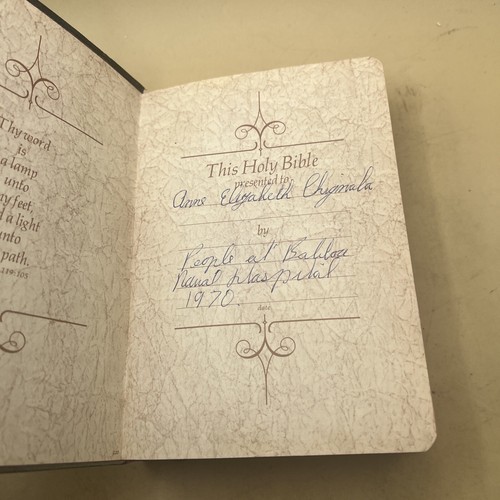 Thy word
is
a lamp
unto
my feet,
and a light
unto
path.
119:105
This Holy Bible
presented to
Anne Elizabeth Chiginala
by
People at Balboa
Naval Hospital
1970.
date